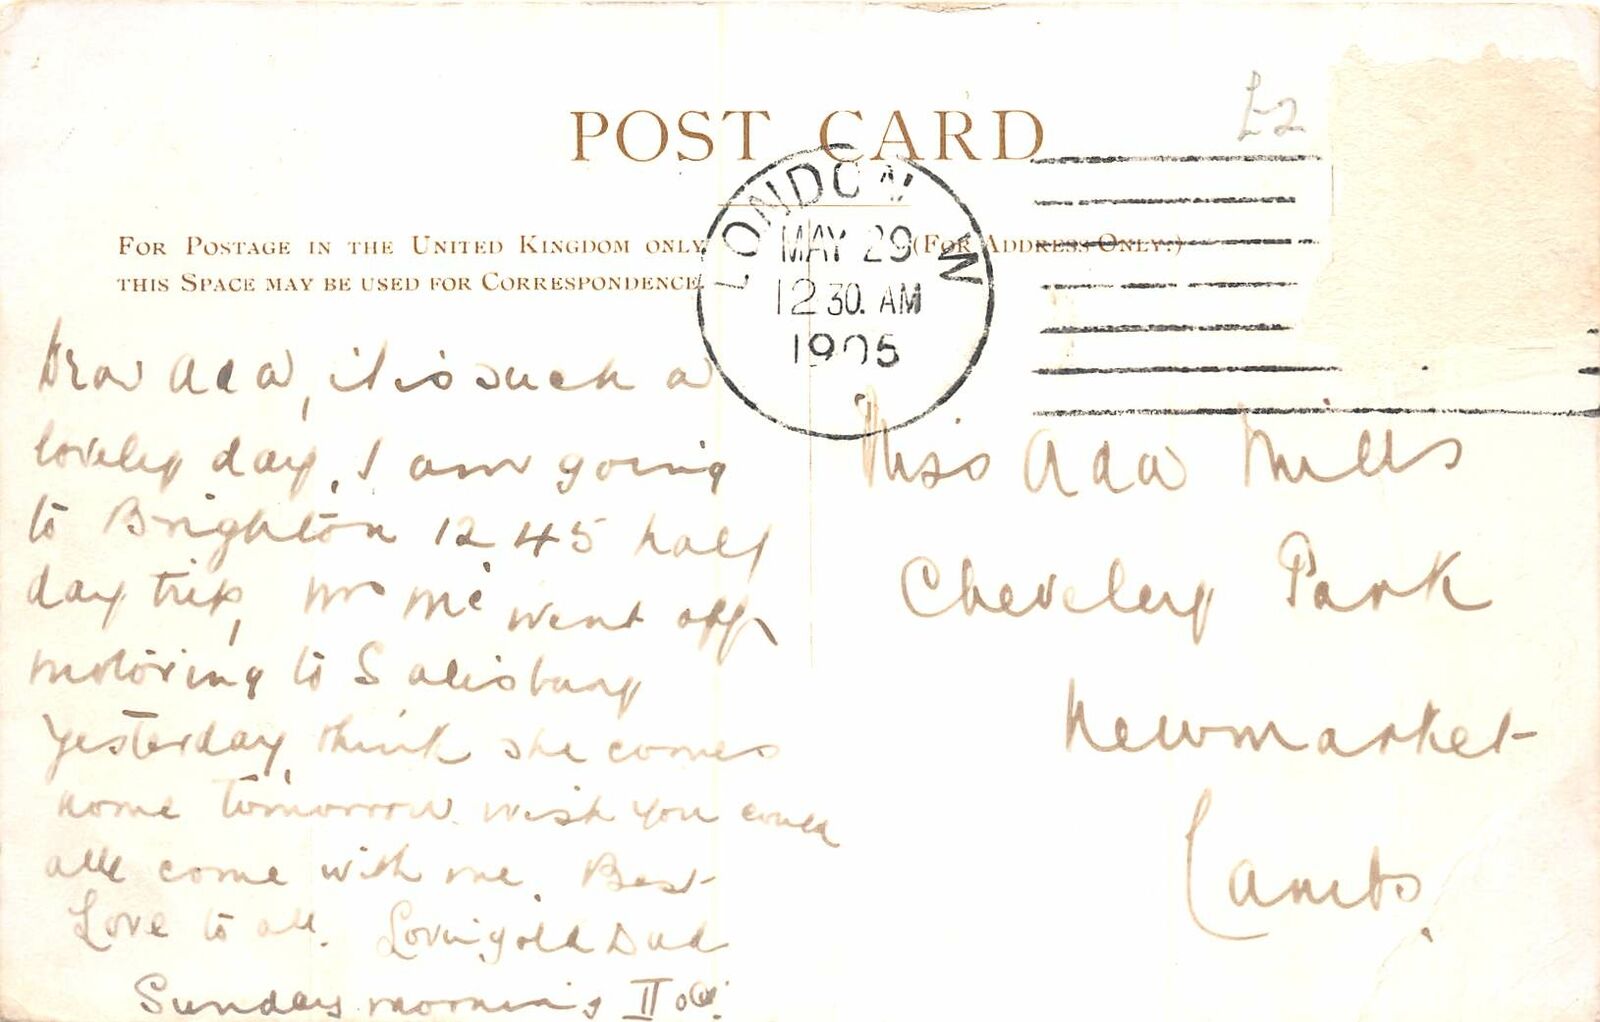 £2
POST CARD
LONDON W
MAY 29
12 30. AM
1905
FOR POSTAGE IN THE UNITED KINGDOM ONLY
THIS SPACE MAY BE USED FOR CORRESPONDENCE.
(FOR ADDRESS ONLY.)
Dear Ada, it is such a
lovely day, I am going
to Brighton 12 45 half
day trip, Mrs Mc went off
motoring to Salisbury
yesterday, think she comes
home tomorrow. wish you could
all come with me. Best
Love to all. Loving old Dad
Sunday morning II oc.
Miss Ada Mills
Cheveley Park
Newmarket
Cambs.